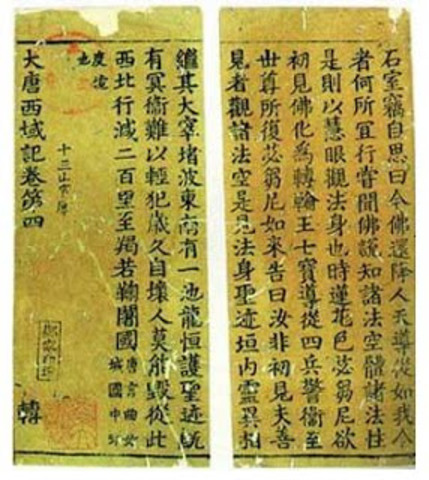 石室竊自思曰今佛還降人天導從如我今
者何所冝行嘗聞佛說知諸法空體諸法性
是則以慧眼觀法身也時蓮花色苾芻尼欲
初見佛化為轉輪王七寶導從四兵警衞至
世尊所復苾芻尼如來告曰汝非初見夫善
見者觀諸法空是見法身聖迹垣内靈異相
繼其大窣堵波東南有一池龍恒護聖迹既
有冥衞難以輕犯歲久自壞人莫能毀從此
西北行減二百里至羯若鞠闍國
唐言曲女
城國中印
度境
也
大唐西域記卷第四
轉